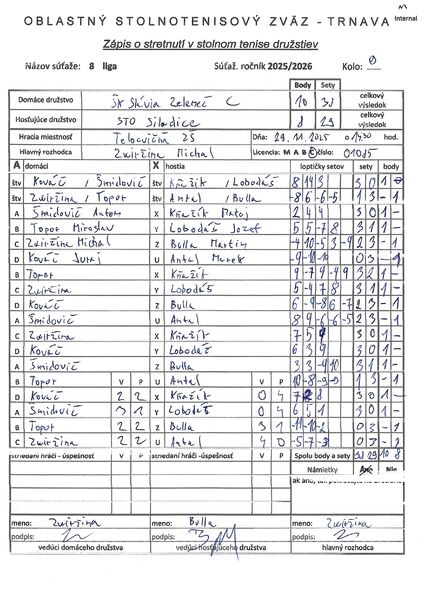 OBLASTNÝ STOLNOTENISOVÝ ZVÄZ - TRNAVA
Internal
Zápis o stretnutí v stolnom tenise družstiev
Názov súťaže: 8 liga Súťaž. ročník 2025/2026 Kolo:
Body Sety
Domáce družstvo ŠK Slávia Zeleneč C 10 38 celkový výsledok
Hosťujúce družstvo STO Siladice 8 29 celkový výsledok
Hracia miestnosť Telocvičňa ZŠ Dňa: 29.11.2025 o 14.30 hod.
Hlavný rozhodca Zwiržina Michal Licencia: M A B C číslo: 01085
A domáci X hostia loptičky setov sety body
štv Kováč / Šmidovič štv Križík / Lobodáš 8 14 3 3 0 1 -
štv Zwiržina / Topor štv Antal / Bulla -8 6 -6 -5 1 3 - 1
A Šmidovič Anton X Križík Matej 2 4 4 3 0 1 -
B Topor Miroslav Y Lobodáš Jozef 5 5 -7 8 3 1 1 -
C Zwiržina Michal Z Bulla Martin -4 10 -5 3 -9 2 3 - 1
D Kováč Juraj U Antal Marek 0 3 - 1
B Topor X Križík 9 -7 4 -4 9 3 2 1 -
C Zwiržina Y Lobodáš 5 -4 7 8 3 1 1 -
D Kováč Z Bulla 6 -9 8 -6 -7 2 3 - 1
A Šmidovič U Antal 8 9 -6 -6 -5 2 3 - 1
C Zwiržina X Križík 7 5 9 3 0 1 -
D Kováč Y Lobodáš 6 3 9 3 0 1 -
A Šmidovič Z Bulla 3 3 -9 10 3 1 1 -
B Topor V P U Antal V P 1 3 - 1
D Kováč 2 2 X Križík 0 4 3 0 1 -
A Šmidovič 3 1 Y Lobodáš 0 4 6 5 1 3 0 1 -
B Topor 2 2 Z Bulla 3 1 0 3 - 1
C Zwiržina 2 2 U Antal 4 0 -5 -7 -3 0 3 - 1
striedaní hráči - úspešnosť striedaní hráči - úspešnosť Spolu body a sety 38 29 10 8
Námietky Áno Nie
meno: Zwiržina meno: Bulla meno: Zwiržina
podpis: podpis: podpis:
vedúci domáceho družstva vedúci hosťujúceho družstva hlavný rozhodca